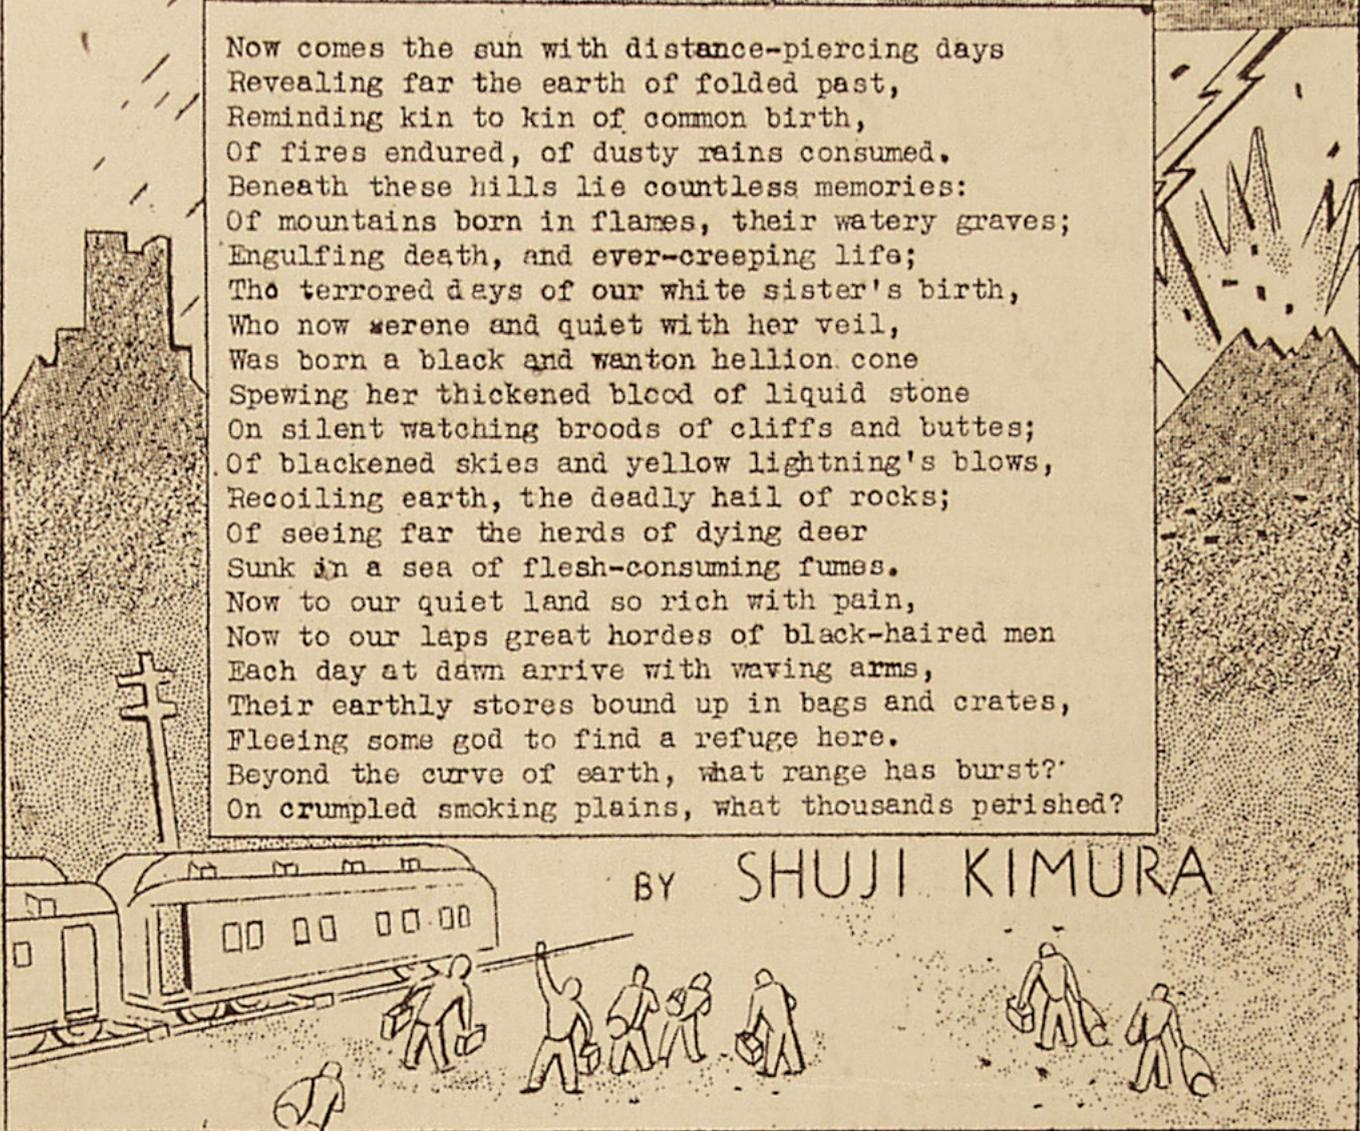 Now comes the sun with distance-piercing days
Revealing far the earth of folded past,
Reminding kin to kin of common birth,
Of fires endured, of dusty rains consumed.
Beneath these hills lie countless memories:
Of mountains born in flames, their watery graves;
Engulfing death, and ever-creeping life;
The terrored days of our white sister's birth,
Who now serene and quiet with her veil,
Was born a black and wanton hellion cone
Spewing her thickened blood of liquid stone
On silent watching broods of cliffs and buttes;
Of blackened skies and yellow lightning's blows,
Recoiling earth, the deadly hail of rocks;
Of seeing far the herds of dying deer
Sunk in a sea of flesh-consuming fumes.
Now to our quiet land so rich with pain,
Now to our laps great hordes of black-haired men
Each day at dawn arrive with waving arms,
Their earthly stores bound up in bags and crates,
Fleeing some god to find a refuge here.
Beyond the curve of earth, what range has burst?
On crumpled smoking plains, what thousands perished?
BY SHUJI KIMURA